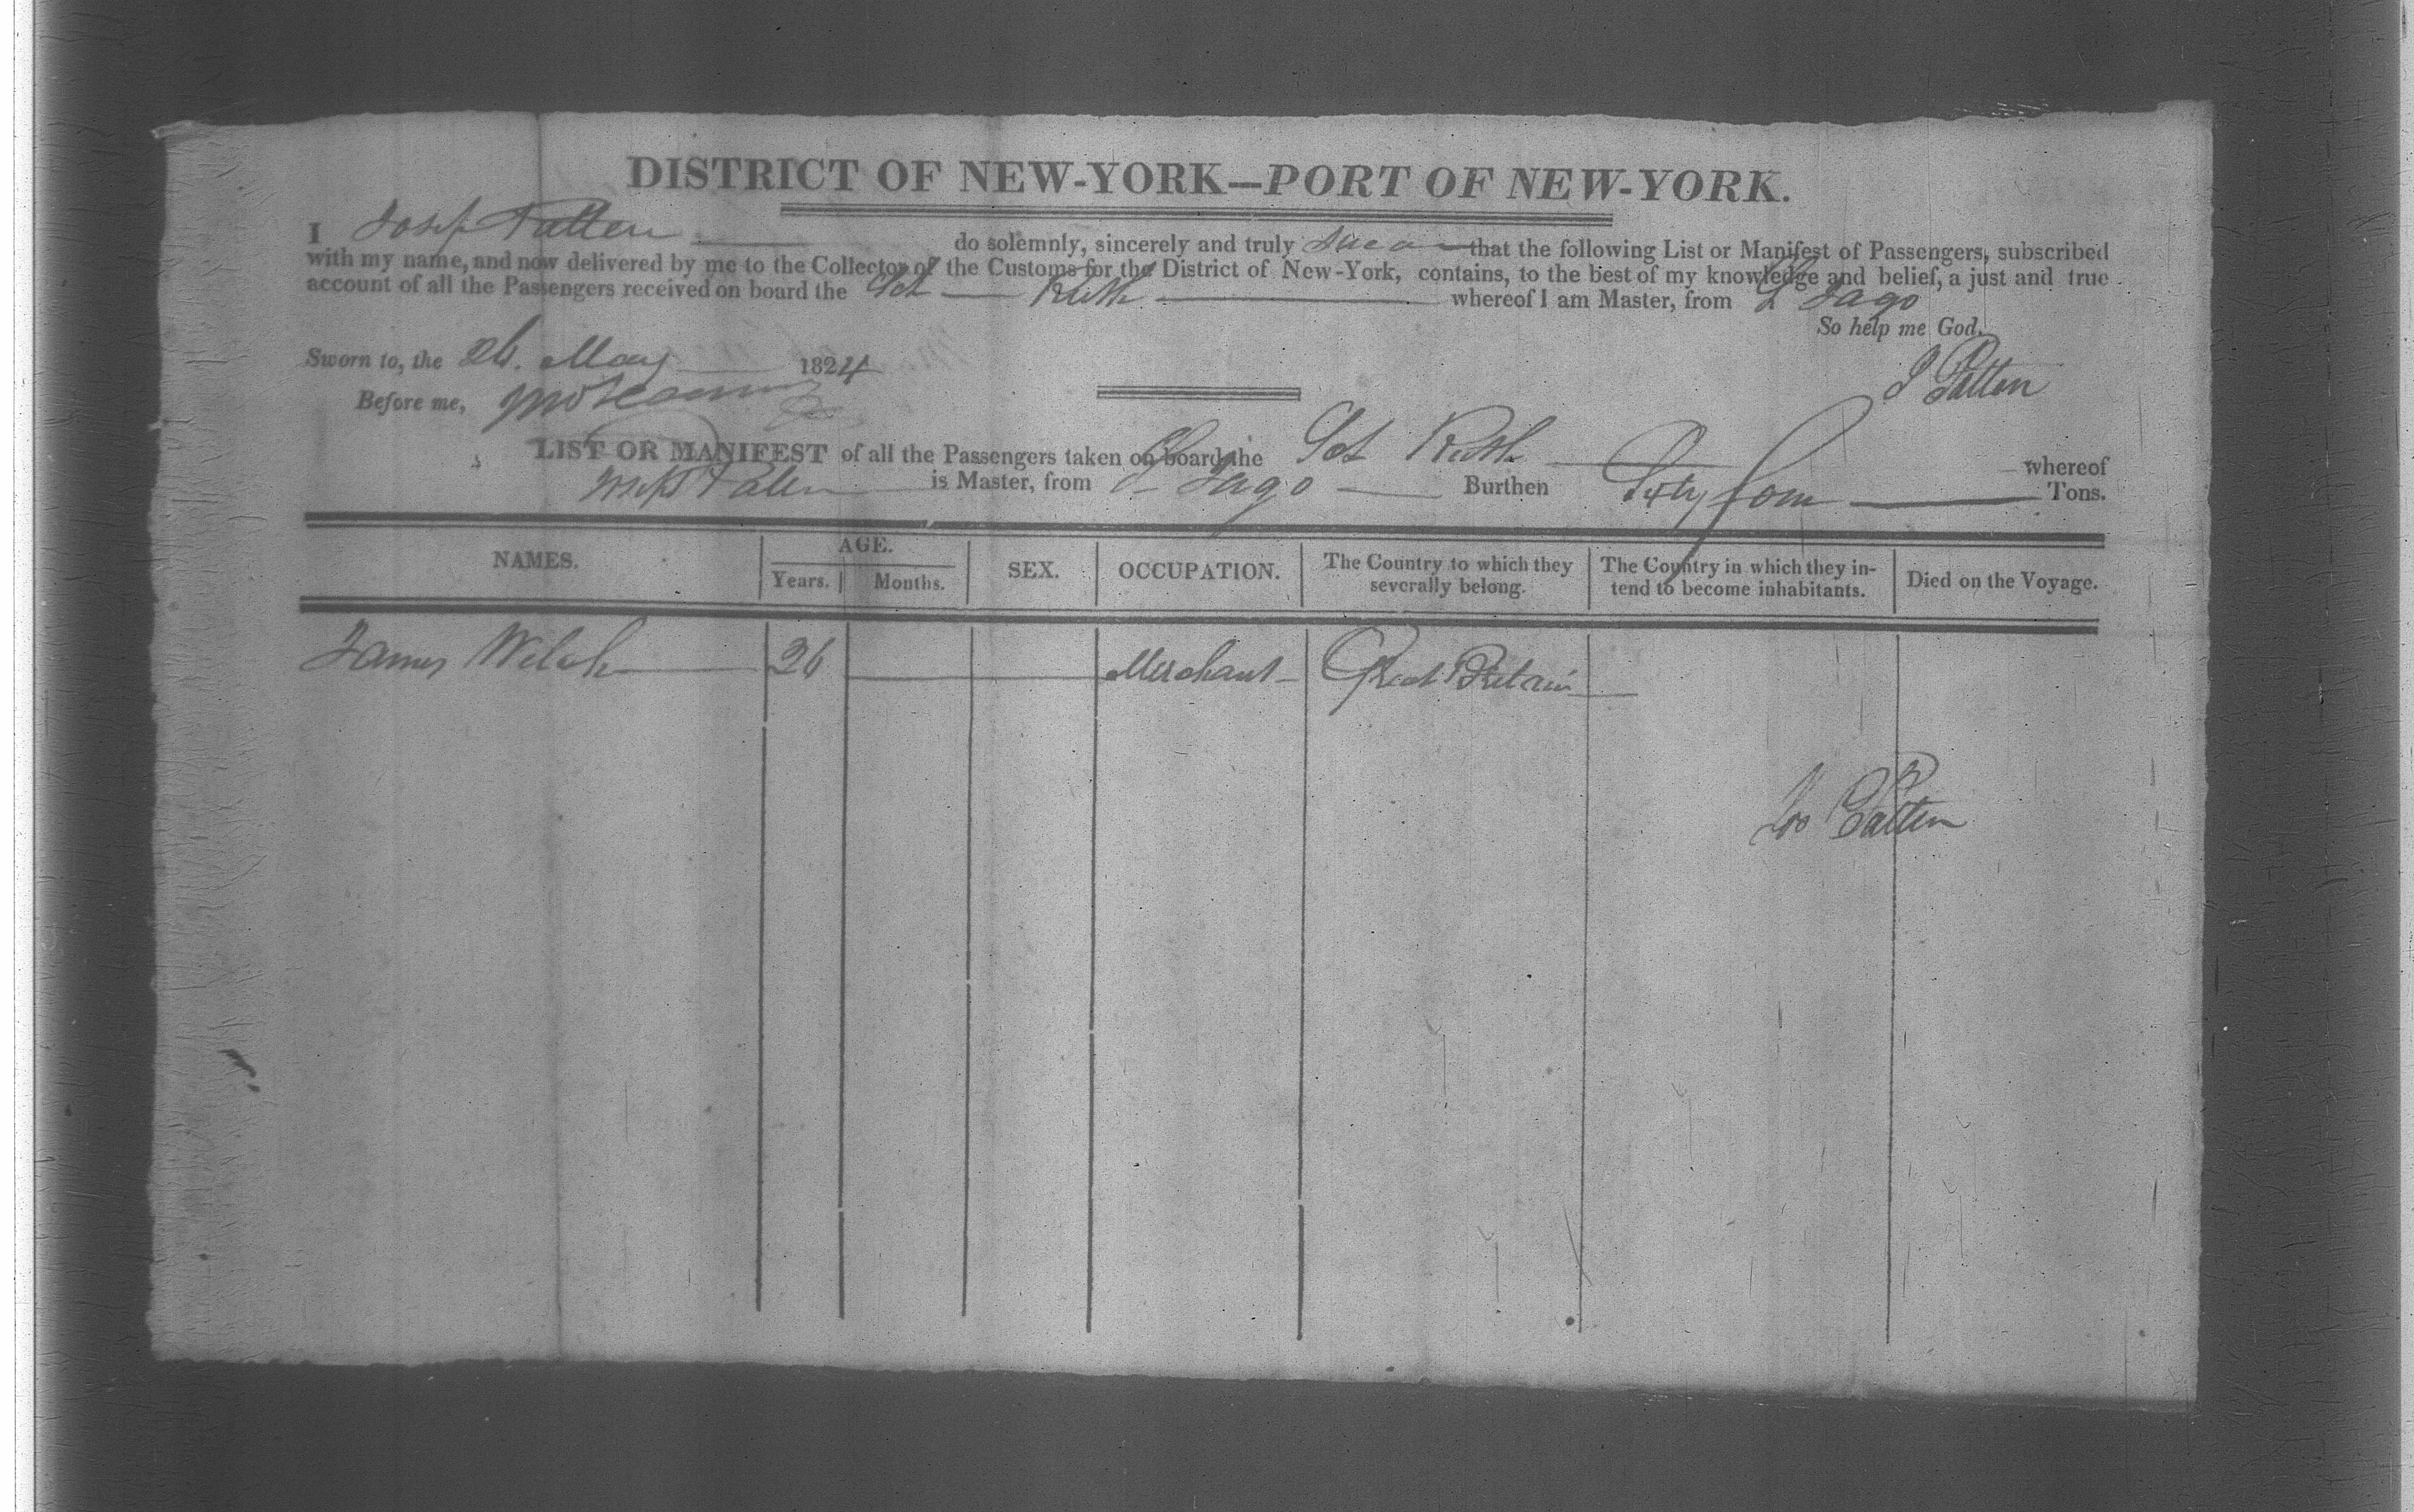 DISTRICT OF NEW-YORK—PORT OF NEW-YORK.
I Josep Patten do solemnly, sincerely and truly swear that the following List or Manifest of Passengers, subscribed
with my name, and now delivered by me to the Collector of the Customs for the District of New-York, contains, to the best of my knowledge and belief, a just and true
account of all the Passengers received on board the Sch Ruth whereof I am Master, from St Jago
So help me God.
Sworn to, the 26. May 1824
J Patten
Before me,
LIST OR MANIFEST of all the Passengers taken on board the Sch Ruth whereof
Patten is Master, from St Jago Burthen Sixty four Tons.
NAMES. AGE. Years. Months. SEX. OCCUPATION. The Country to which they severally belong. The Country in which they intend to become inhabitants. Died on the Voyage.
James Welsh 26 Merchant Great Britain
Jos Patten